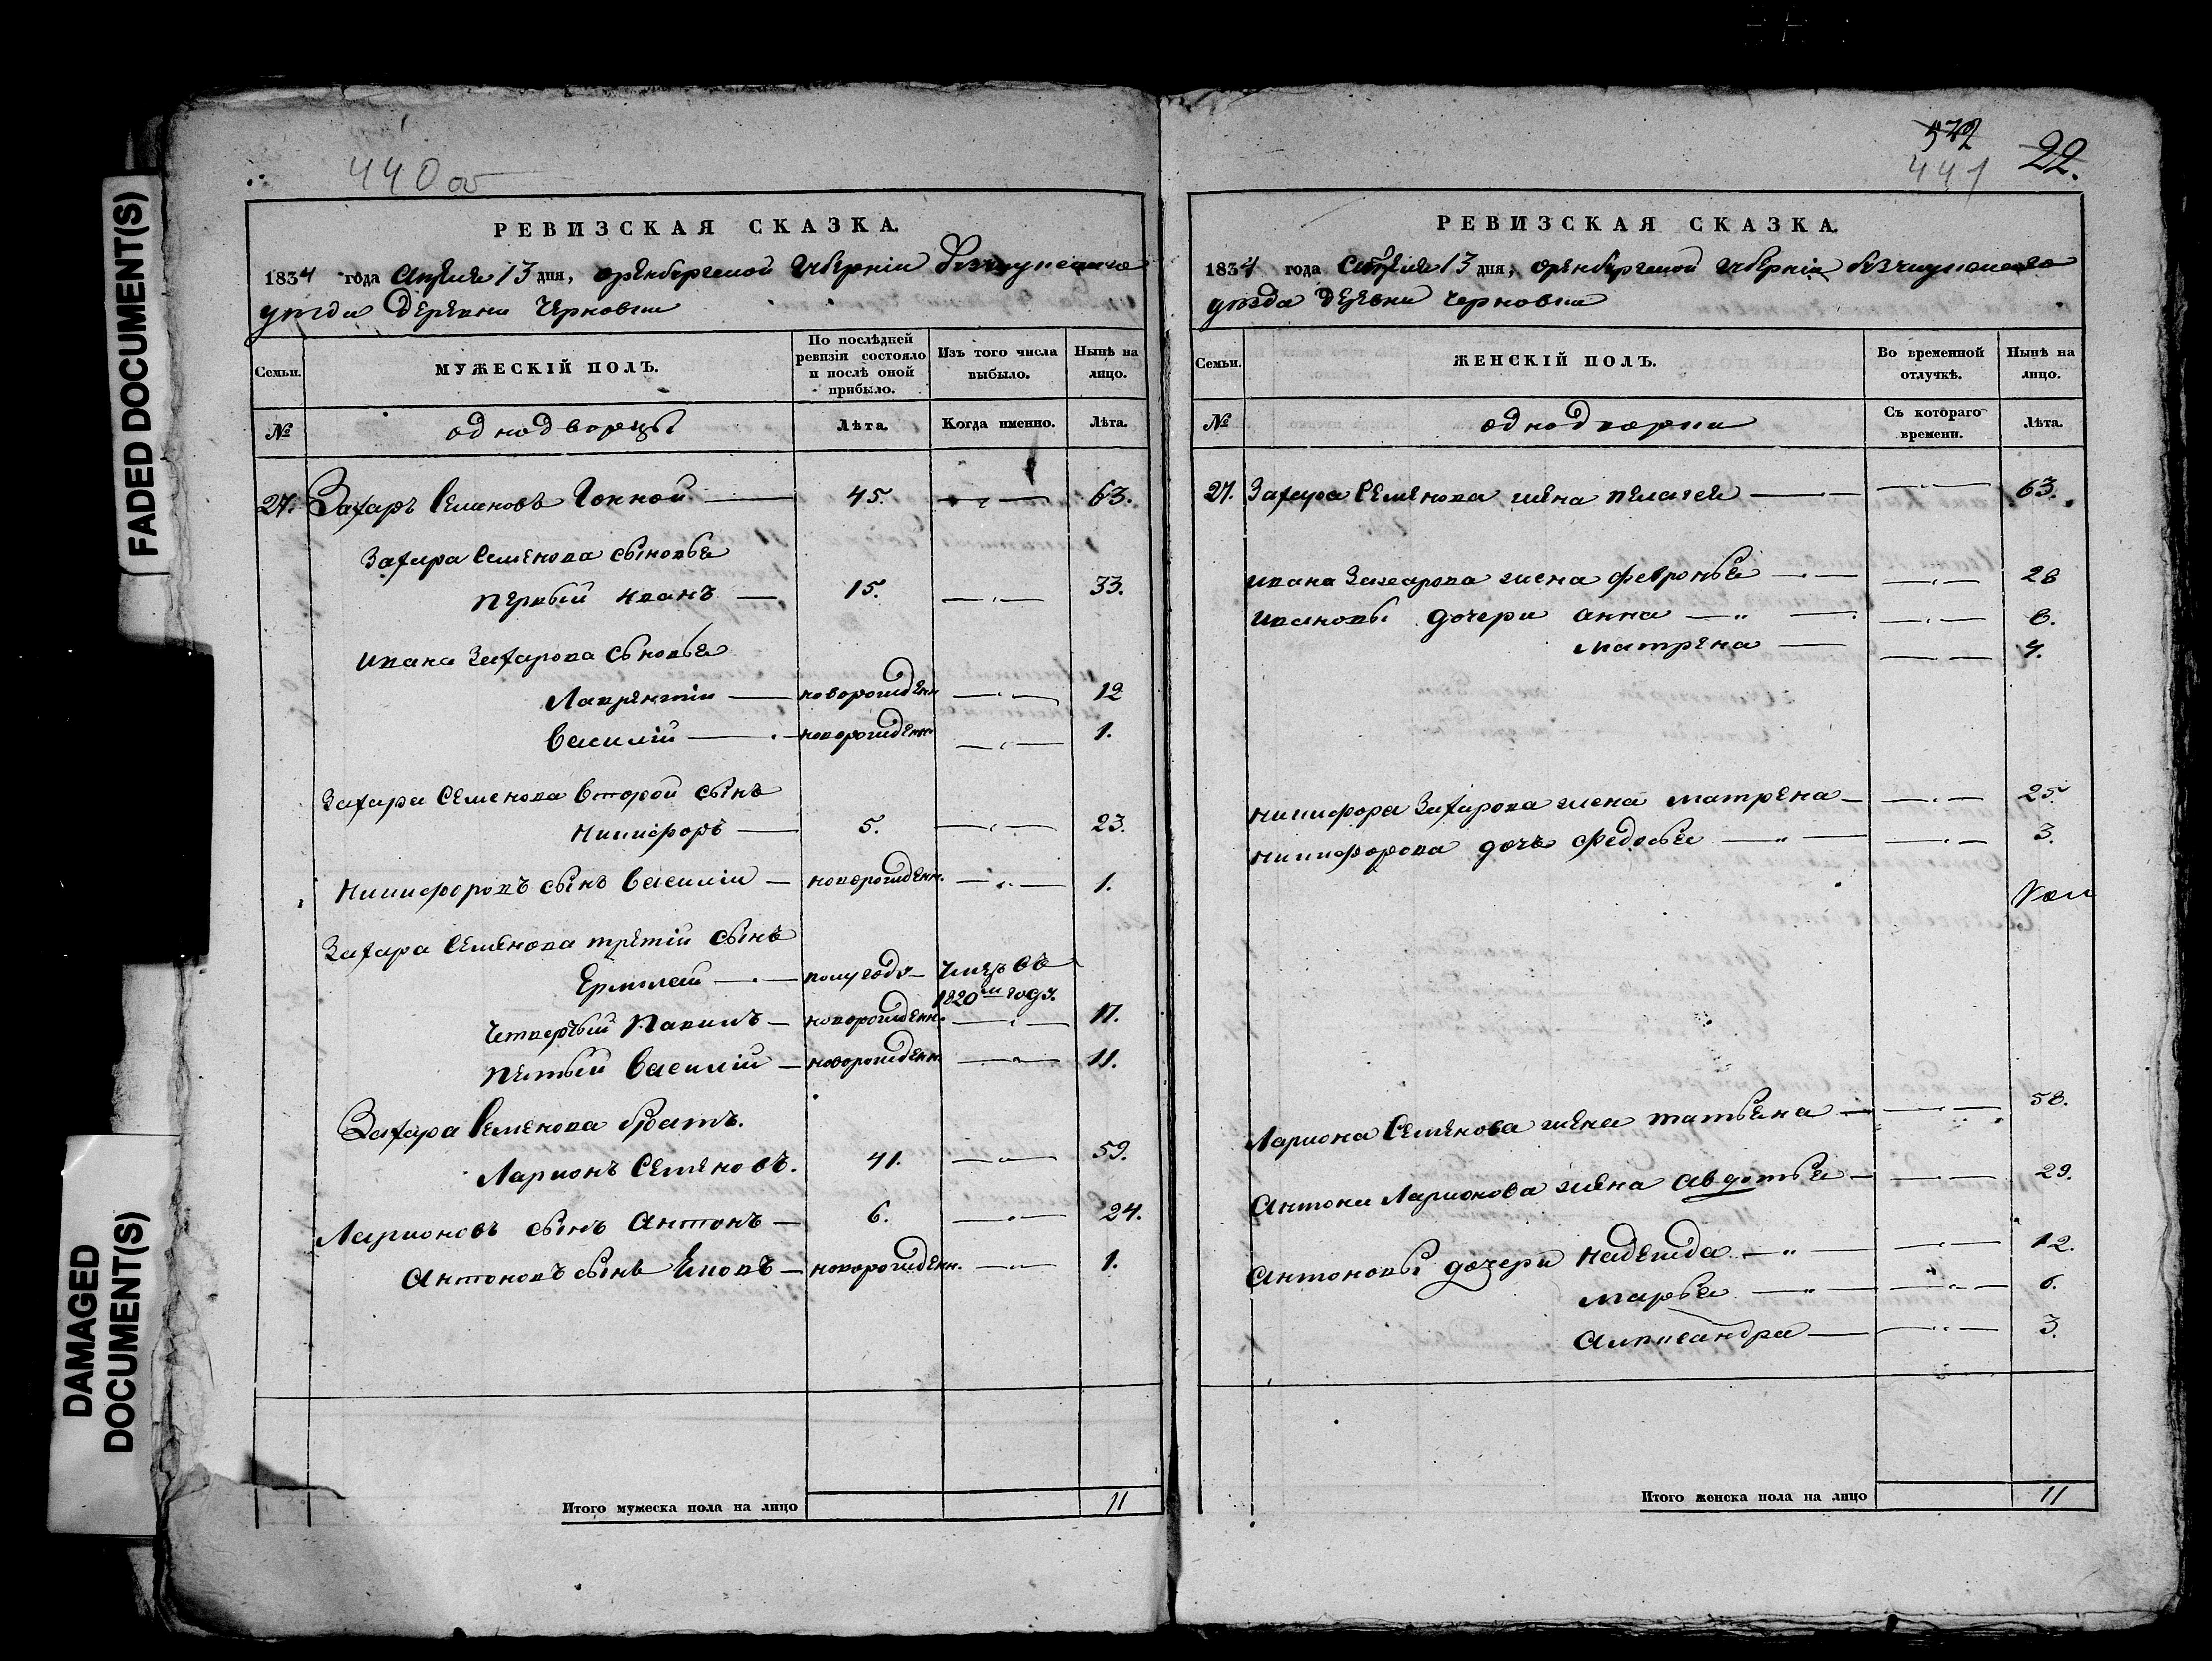 FADED DOCUMENT(S)
DAMAGED
DOCUMENT(S)
440 об
РЕВИЗСКАЯ СКАЗКА.
1834 года апреля 13 дня, оренбургской губернии
уезда деревни Черновки
Семьи.
МУЖЕСКІЙ ПОЛЪ.
По послѣдней ревизіи состояло и послѣ оной прибыло.
Изъ того числа выбыло.
Нынѣ на лицо.
№
однодворцы
Лѣта.
Когда именно.
Лѣта.
27. Захаръ Семеновъ 45. 63.
Захара Семенова сыновья
первый иванъ 15. 33.
ивана Захарова сыновья
Лаврентіи новорожденн 12
Василіи новорожденн 1.
Захара Семенова второй сынъ
никифоръ 5. 23.
никифоровъ сынъ василіи новорожденн. 1.
Захара Семенова третіи сынъ
Ермолай полугода умеръ въ
1820 м годъ.
четвертый новорожденн. 17.
пятый Василіи новорожденн. 11.
Захара Семенова братъ.
Ларионъ Семеновъ. 41. 59.
Ларионовъ сынъ антонъ 6. 24.
антоновъ сынъ новорожденн. 1.
Итого мужеска пола на лицо 11
542
441 22.
РЕВИЗСКАЯ СКАЗКА.
1834 года апреля 13 дня, оренбургской губерніи
уезда деревни черновки
Семьи.
ЖЕНСКІЙ ПОЛЪ.
Во временной отлучкѣ.
Нынѣ на лицо.
№
однодворки
Съ котораго времени.
Лѣта.
27. Захара Семенова жена пелагея 63.
ивана Захарова жена февронья 28
ивановы дочери анна 8.
матрена 4.
никифора Захарова жена матрена 25.
никифорова дочь Федосья 3.
Лариона Семенова жена татьяна 58.
антона Ларионова жена авдотья 29.
антоновы дочери надежда 12.
марья 6.
александра 3.
Итого женска пола на лицо 11